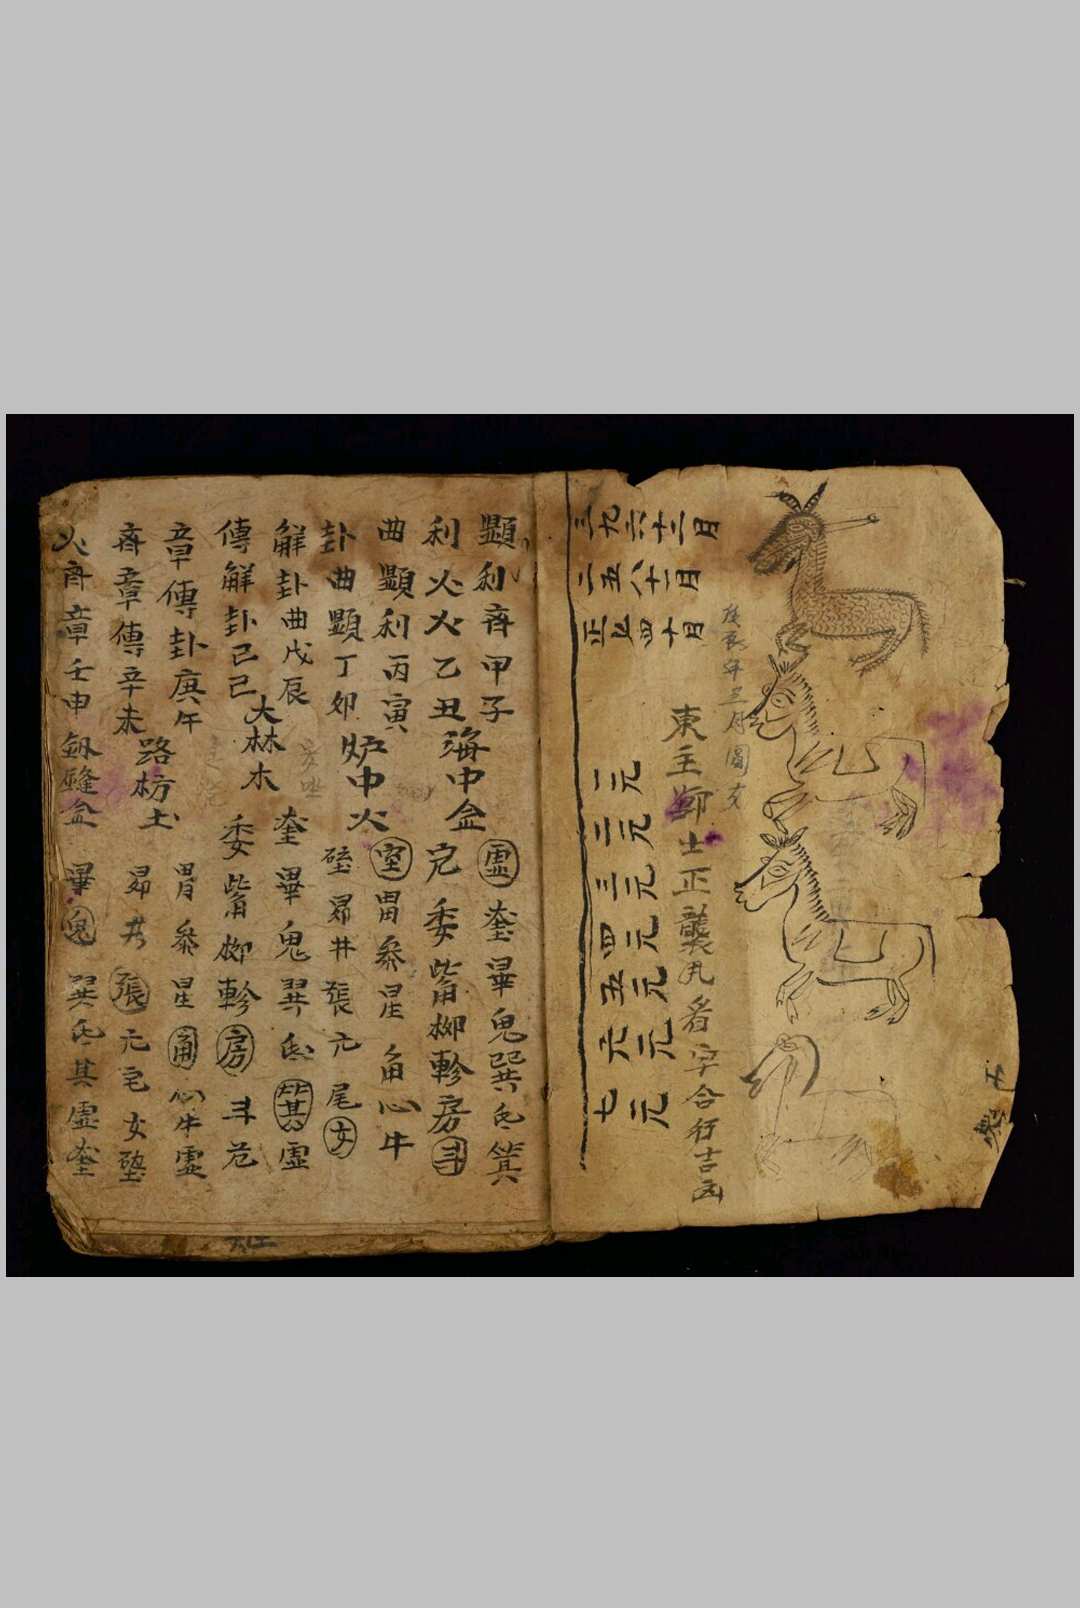 東主鄧士正襲
看字合行吉凶
三九六十二月
二五八十一月
正四十月
一元
二元
三元
四元
五元
六元
七元
顯利齊甲子
海中金
虛奎畢鬼翼氐箕
利火火乙丑
危婁觜柳軫房斗
曲顯利丙寅
炉中火
室胃參星角心牛
卦曲顯丁卯
壁昴井張亢尾女
解卦曲戊辰
大林木
奎畢鬼翼氐箕虛
傳解卦己巳
婁觜柳軫房斗危
章傳卦庚午
路枋土
胃參星角心牛虛
齊章傳辛未
昴井張亢宅女壁
火齊章壬申
釼鋒金
畢鬼翼氐其虛奎